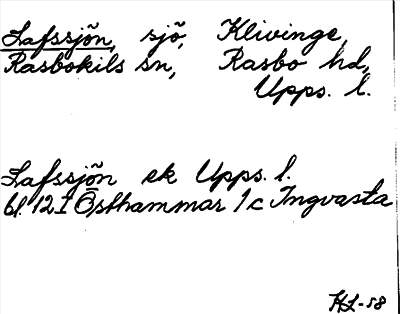 Lafssjön, sjö, Klivinge,
Rasbokils sn, Rasbo hd,
Upps. l.
Lafssjön ek Upps. l.
bl. 12 I Östhammar 1c Ingvasta
HL-58